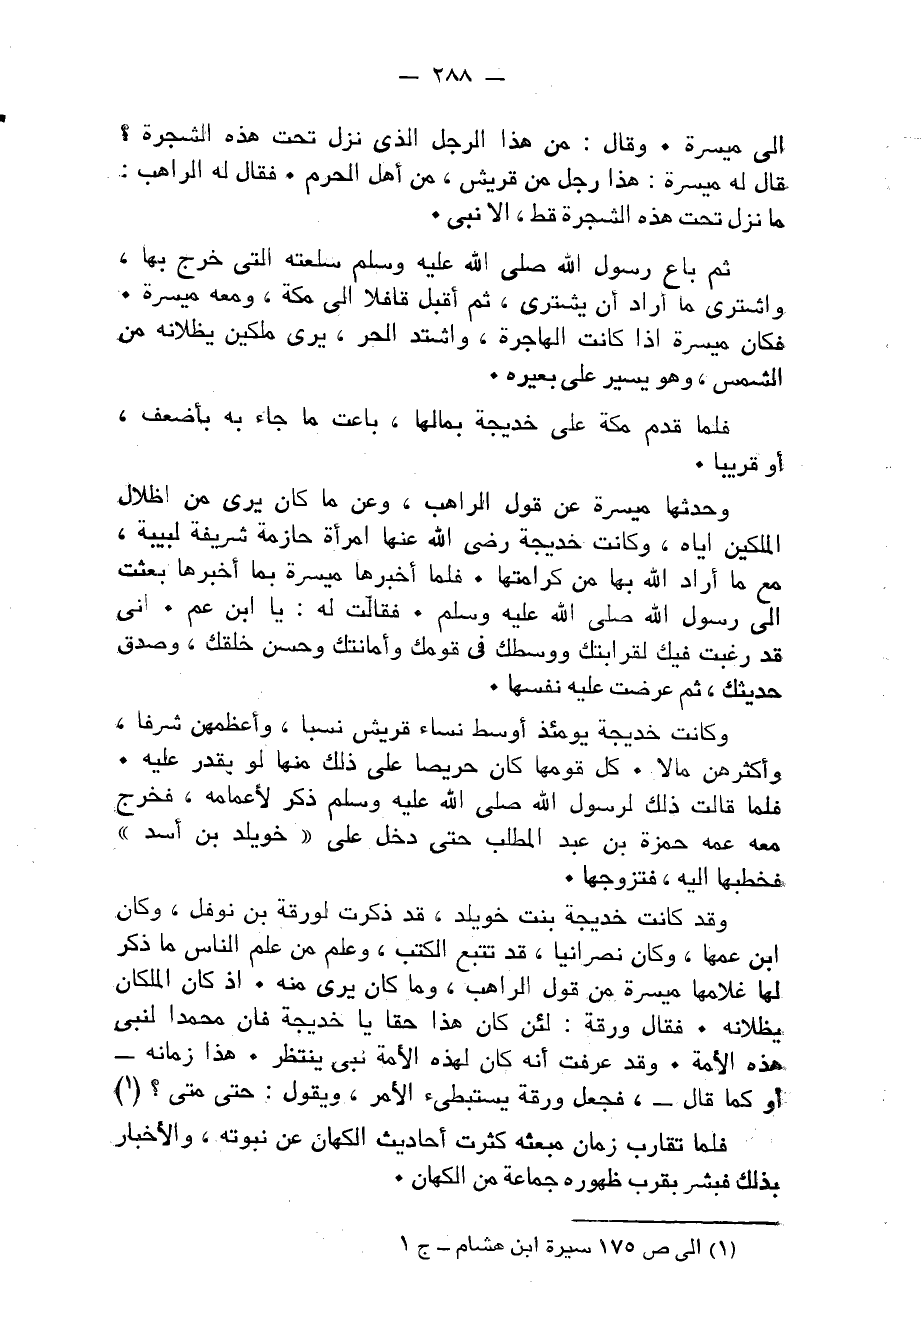 — ٢٨٨ —
الى ميسرة • وقال : من هذا الرجل الذى نزل تحت هذه الشجرة ؟
قال له ميسرة : هذا رجل من قريش ، من أهل الحرم • فقال له الراهب :
ما نزل تحت هذه الشجرة قط ، الا نبى •
ثم باع رسول الله صلى الله عليه وسلم سلعته التى خرج بها ،
واشترى ما أراد أن يشترى ، ثم أقبل قافلا الى مكة ، ومعه ميسرة •
فكان ميسرة اذا كانت الهاجرة ، واشتد الحر ، يرى ملكين يظلانه من
الشمس ، وهو يسير على بعيره •
فلما قدم مكة على خديجة بمالها ، باعت ما جاء به بأضعف ،
أو قريبا •
وحدثها ميسرة عن قول الراهب ، وعن ما كان يرى من اظلال
الملكين اياه ، وكانت خديجة رضى الله عنها امرأة حازمة شريفة لبيبة ،
مع ما أراد الله بها من كرامتها • فلما أخبرها ميسرة بما أخبرها بعثت
الى رسول الله صلى الله عليه وسلم • فقالت له : يا ابن عم • انى
قد رغبت فيك لقرابتك ووسطك فى قومك وأمانتك وحسن خلقك ، وصدق
حديثك ، ثم عرضت عليه نفسها •
وكانت خديجة يومئذ أوسط نساء قريش نسبا ، وأعظمهن شرفا ،
وأكثرهن مالا • كل قومها كان حريصا على ذلك منها لو يقدر عليه •
فلما قالت ذلك لرسول الله صلى الله عليه وسلم ذكر لأعمامه ، فخرج
معه عمه حمزة بن عبد المطلب حتى دخل على « خويلد بن أسد »
فخطبها اليه ، فتزوجها •
وقد كانت خديجة بنت خويلد ، قد ذكرت لورقة بن نوفل ، وكان
ابن عمها ، وكان نصرانيا ، قد تتبع الكتب ، وعلم من علم الناس ما ذكر
لها غلامها ميسرة من قول الراهب ، وما كان يرى منه • اذ كان الملكان
يظلانه • فقال ورقة : لئن كان هذا حقا يا خديجة فان محمدا لنبى
هذه الأمة • وقد عرفت أنه كان لهذه الأمة نبى ينتظر • هذا زمانه —
أو كما قال — ، فجعل ورقة يستبطىء الأمر ، ويقول : حتى متى ؟ (١)
فلما تقارب زمان مبعثه كثرت أحاديث الكهان عن نبوته ، والأخبار
بذلك فبشر بقرب ظهوره جماعة من الكهان •
(١) الى ص ١٧٥ سيرة ابن هشام — ج ١